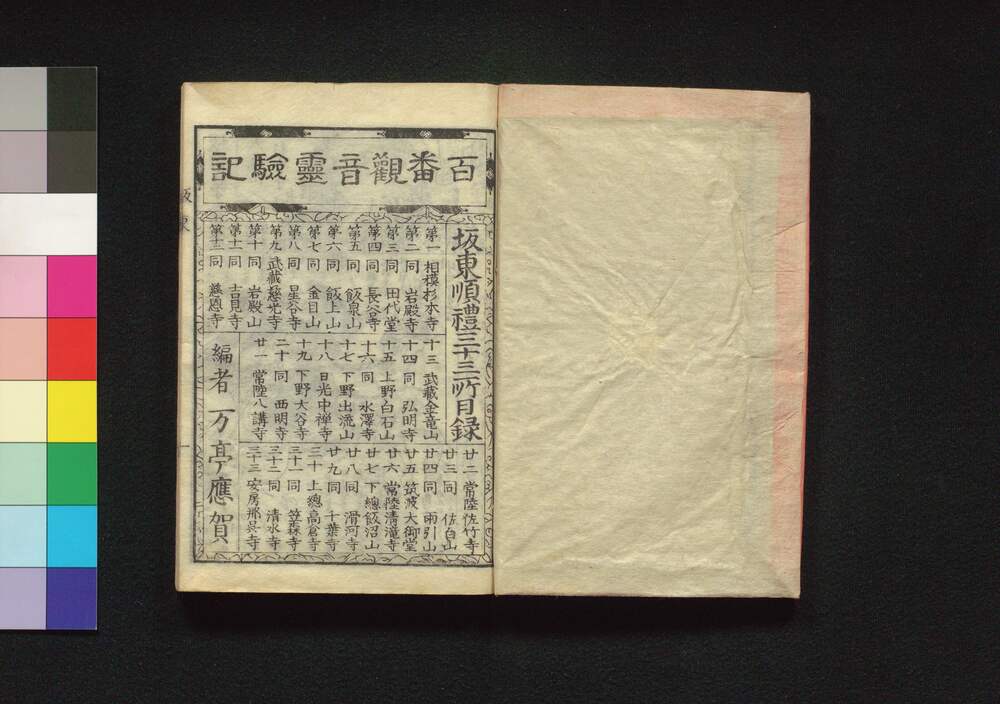 百番觀音靈驗記
坂東順禮三十三所目録
第一 相模杉本寺
第二 同 岩殿寺
第三 同 田代堂
第四 同 長谷寺
第五 同 飯泉山
第六 同 飯上山
第七 同 金目山
第八 同 星谷寺
第九 武藏慈光寺
第十 同 岩殿山
第十一 同 吉見寺
第十二 同 慈恩寺
十三 武藏金竜山
十四 同 弘明寺
十五 上野白石山
十六 同 水澤寺
十七 下野出流山
十八 日光中禅寺
十九 下野大谷寺
二十 同 西明寺
廿一 常陸八講寺
廿二 常陸佐竹寺
廿三 同 佐白山
廿四 同 雨引山
廿五 筑波大御堂
廿六 常陸清滝寺
廿七 下總飯沼山
廿八 同 滑河寺
廿九 同 千葉寺
三十 上總高倉寺
三十一 同 笠森寺
三十二 同 清水寺
三十三 安房那古寺
編者 万亭應賀
坂東
一